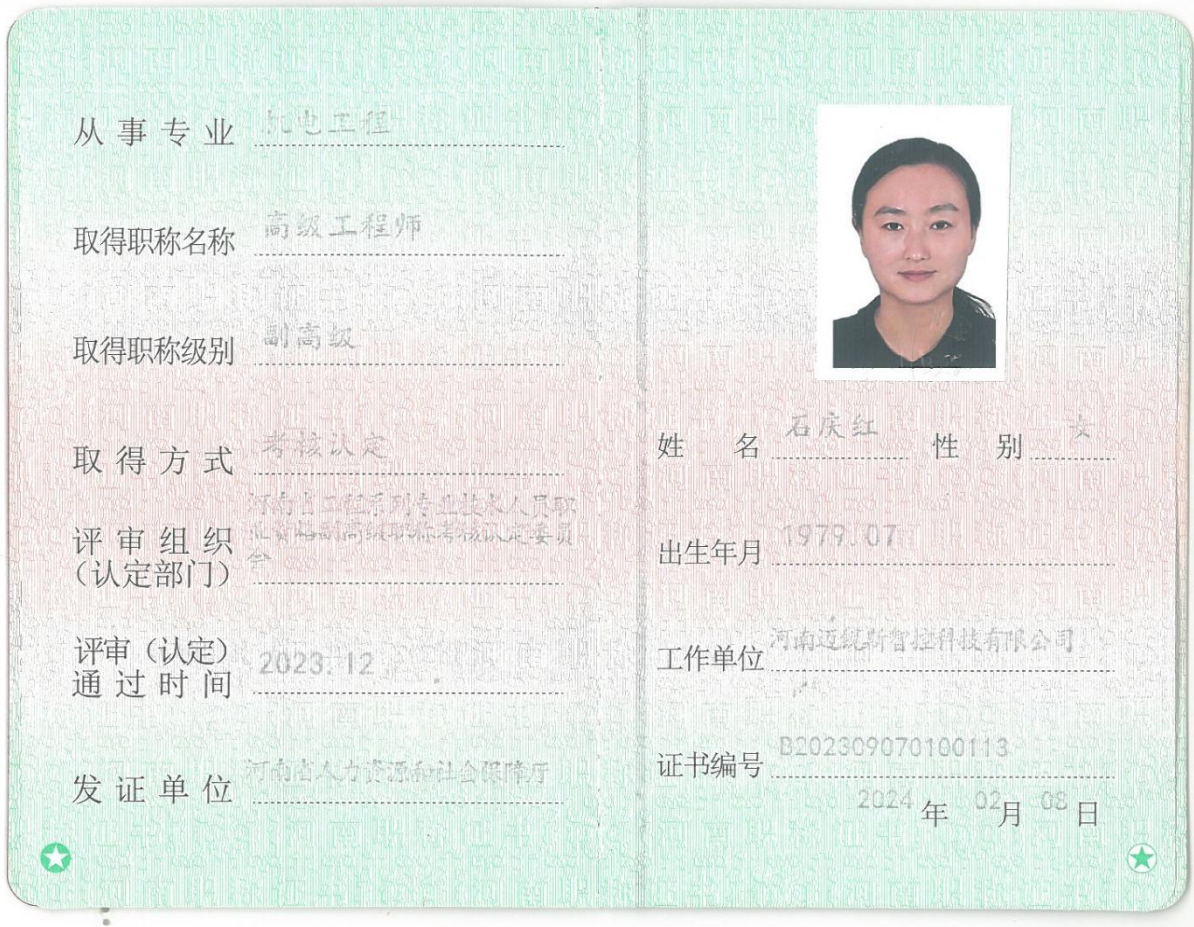 从事专业 机电工程
取得职称名称 高级工程师
取得职称级别 副高级
取得方式 考核认定
河南省工程系列专业技术人员职
评审组织 业资格副高级职称考核认定委员
(认定部门) 会
评审(认定)
通过时间 2023.12
发证单位 河南省人力资源和社会保障厅
姓名 石庆红 性别 女
出生年月 1979.07
工作单位 河南迈统斯智控科技有限公司
证书编号 B202309070100113
2024 年 02 月 08 日